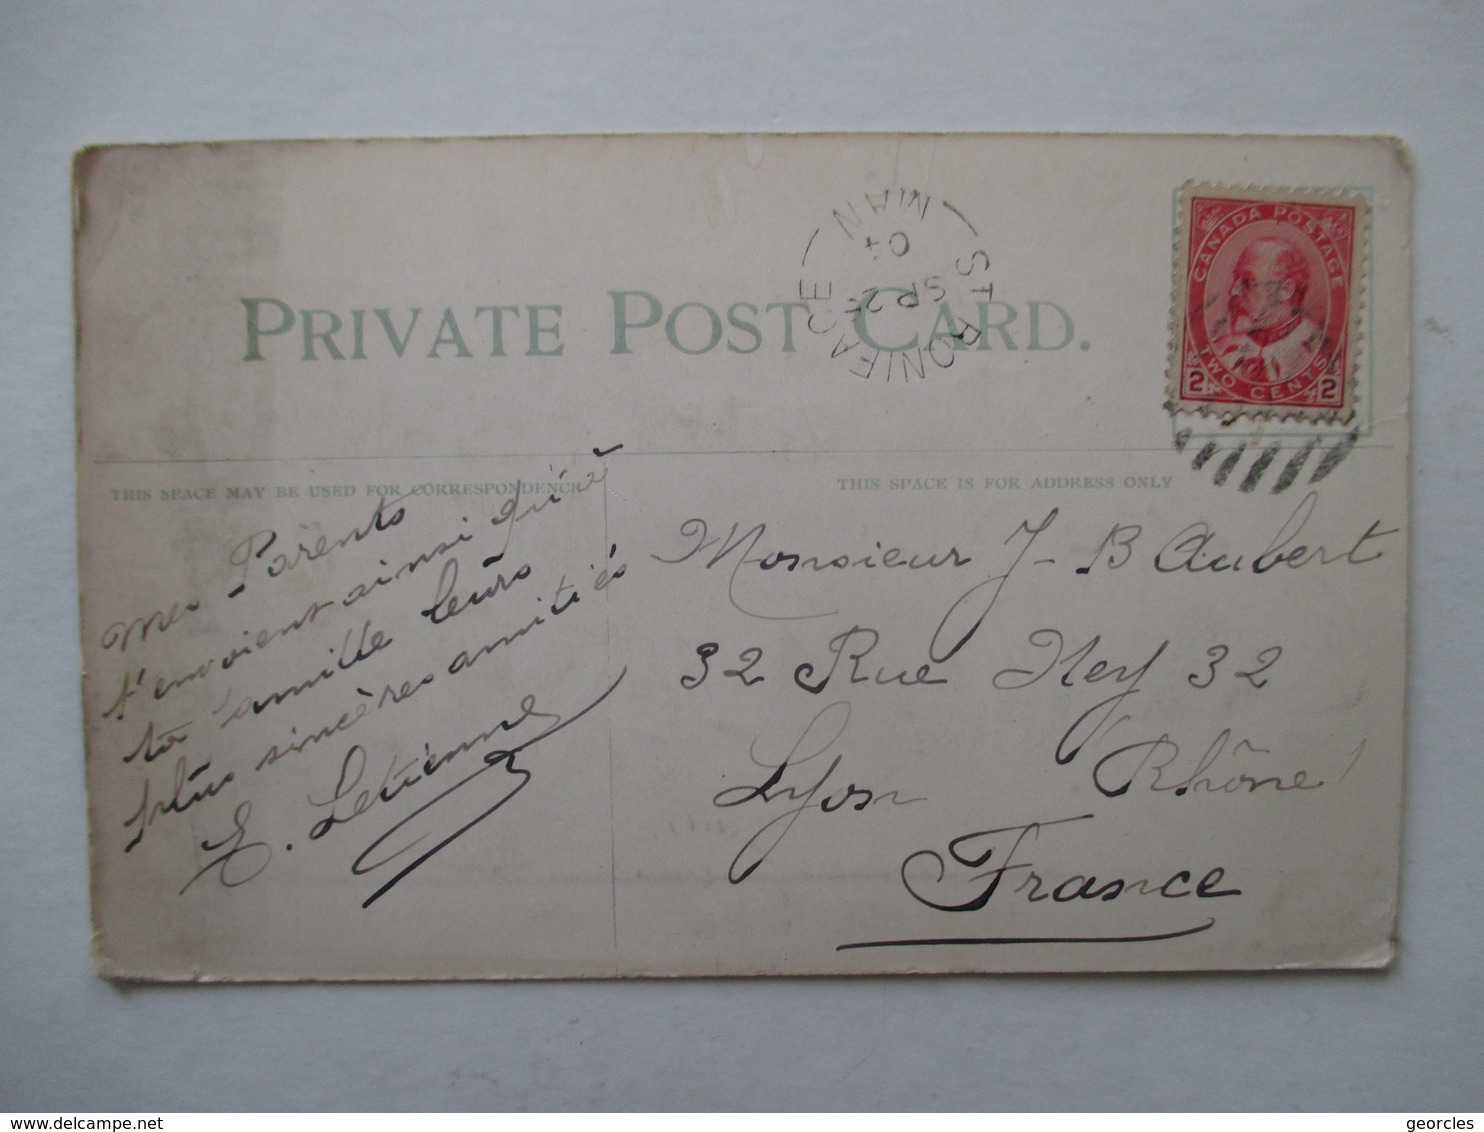 PRIVATE POST CARD.
ST BONIFACE
MAN
SP 25
04
CANADA POSTAGE
2 TWO CENTS 2
THIS SPACE MAY BE USED FOR CORRESPONDENCE
THIS SPACE IS FOR ADDRESS ONLY
Mes Parents
t'envoient ainsi qu'à
ta famille leurs
plus sincères amitiés
E. Letienne
Monsieur J-B Aubert
32 Rue Ney 32
Lyon Rhône
France
georcles